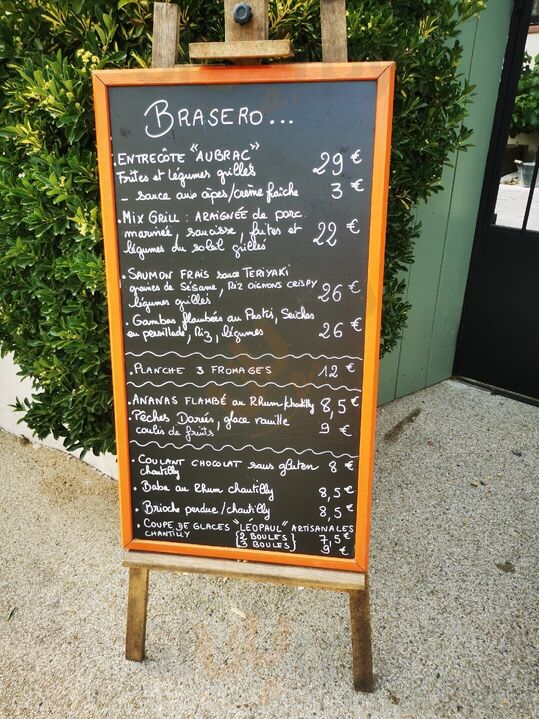 BRASERO...
ENTRECÔTE "AUBRAC" 29 €
Frites et légumes grillés
- sauce aux cèpes/crème fraîche 3 €
• MIX GRILL : ARAIGNÉE de porc
marinée, saucisse, frites et 22 €
légumes du soleil grillés
• SAUMON FRAIS sauce TERIYAKI
graines de Sésame, Riz oignons CRISPY 26 €
légumes grillés
• Gambas flambées au Pastis, Seiches
en persillade, Riz, légumes 26 €
• PLANCHE 3 FROMAGES 12 €
• ANANAS FLAMBÉ au Rhum/chantilly 8,5 €
• Pêches Dorées, glace vanille 9 €
coulis de fruits
• COULANT CHOCOLAT sans gluten 8 €
chantilly
• Baba au Rhum chantilly 8,5 €
• Brioche perdue/chantilly 8,5 €
• COUPE DE GLACES "LEOPAUL" ARTISANALES
CHANTILLY {2 BOULES} 7,5 €
{3 BOULES} 9 €